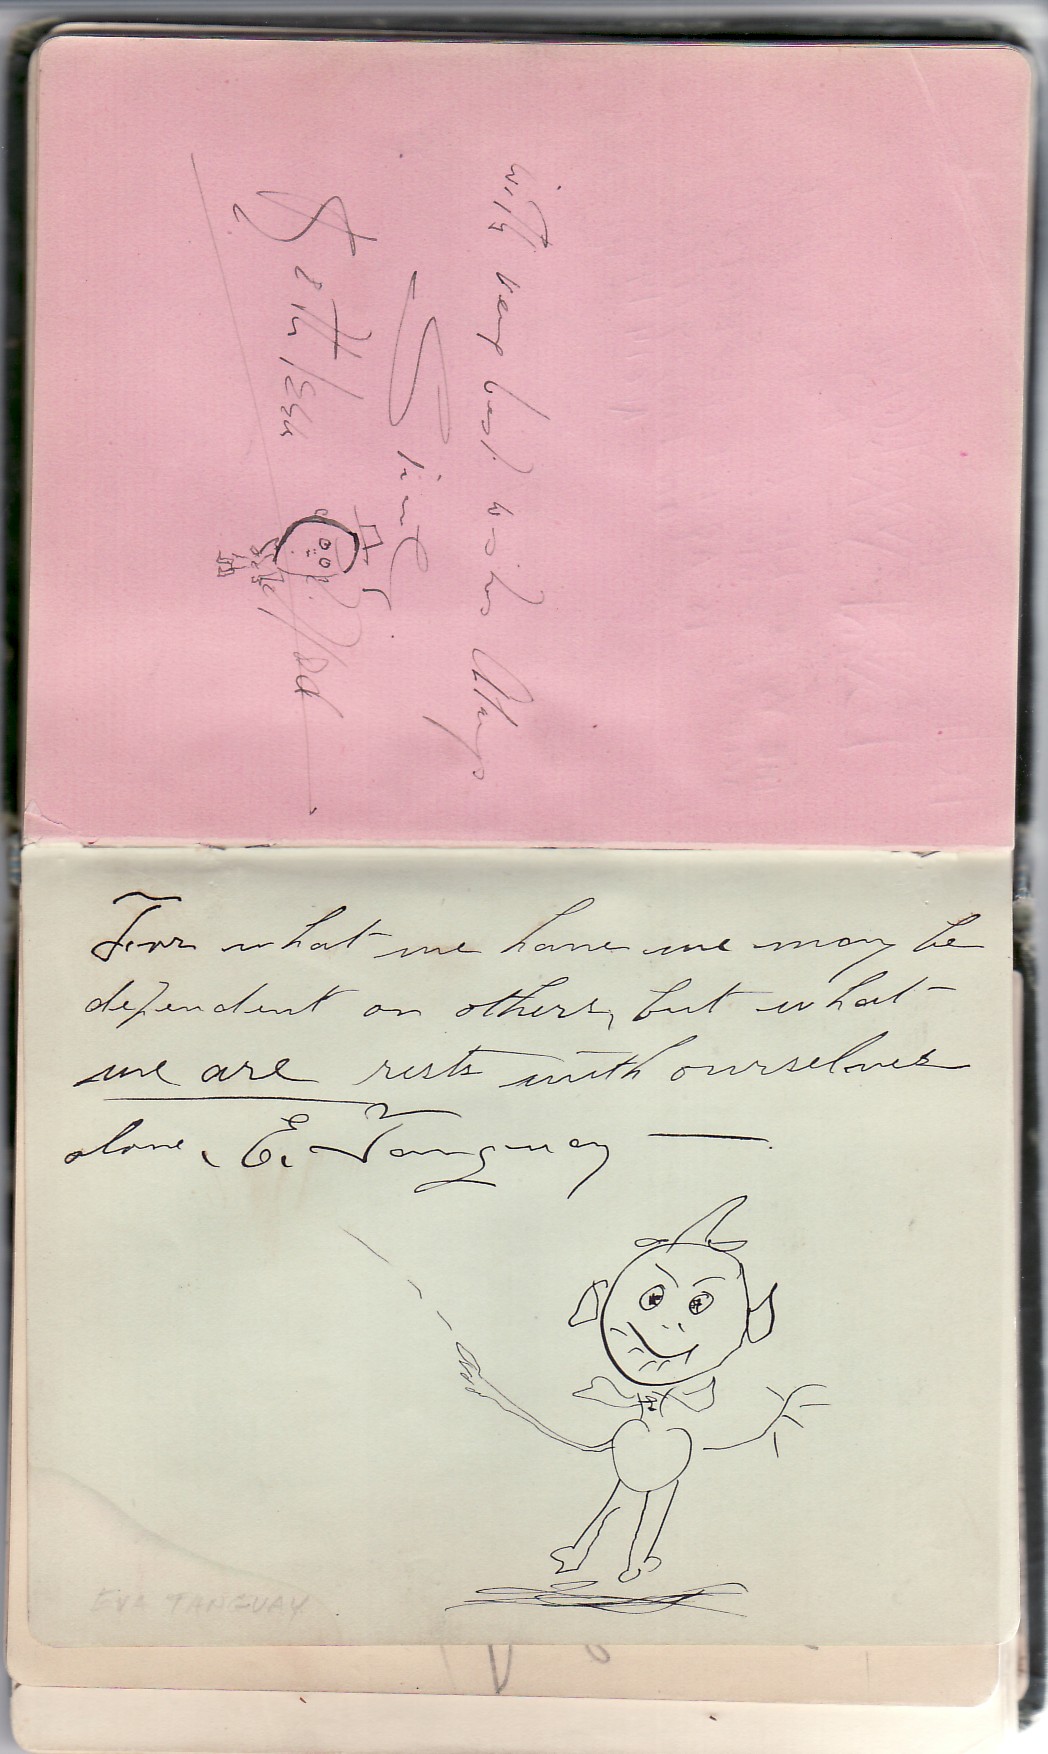 with very best wishes Always
For what we have we may be
dependent on others, but what
we are rests with ourselves
alone, E. Tanguay —.
EVA TANGUAY